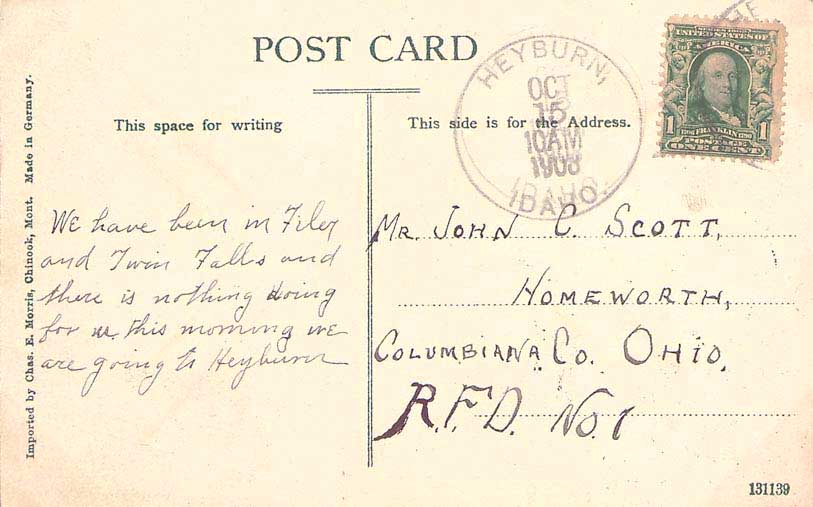 POST CARD
This space for writing
This side is for the Address.
HEYBURN,
OCT
15
10AM
1908
IDAHO.
SERIES 1902
UNITED STATES OF
AMERICA
1
1706 FRANKLIN 1790
1
POSTAGE
ONE CENT
We have been in Filer
and Twin Falls and
there is nothing doing
for us this morning we
are going to Heyburn
Mr. John C. Scott,
Homeworth,
Columbiana Co. Ohio,
R.F.D. No. 1
Imported by Chas. E. Morris, Chinook, Mont. Made in Germany.
131139